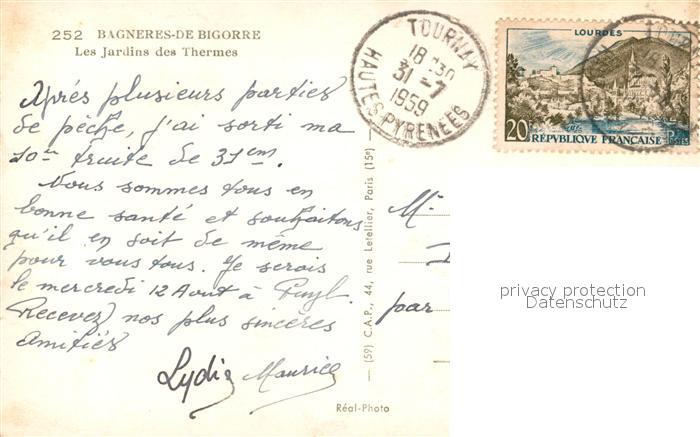 252 BAGNERES-DE BIGORRE
Les Jardins des Thermes
Après plusieurs parties
de pêche, j'ai sorti ma
10me truite de 31cm.
Nous sommes tous en
bonne santé et souhaitons
qu'il en soit de même
pour vous tous. Je serais
le mercredi 12 Aout à
Recevez nos plus sincères
amitiés
Lydie Maurice
Réal-Photo
(59) C.A.P., 44, rue Letellier, Paris (15e)
TOURNAY
18 H30
31-7
1959
HAUTES-PYRENEES
LOURDES
20F
RÉPUBLIQUE FRANÇAISE
Postes
M
par
privacy protection
Datenschutz